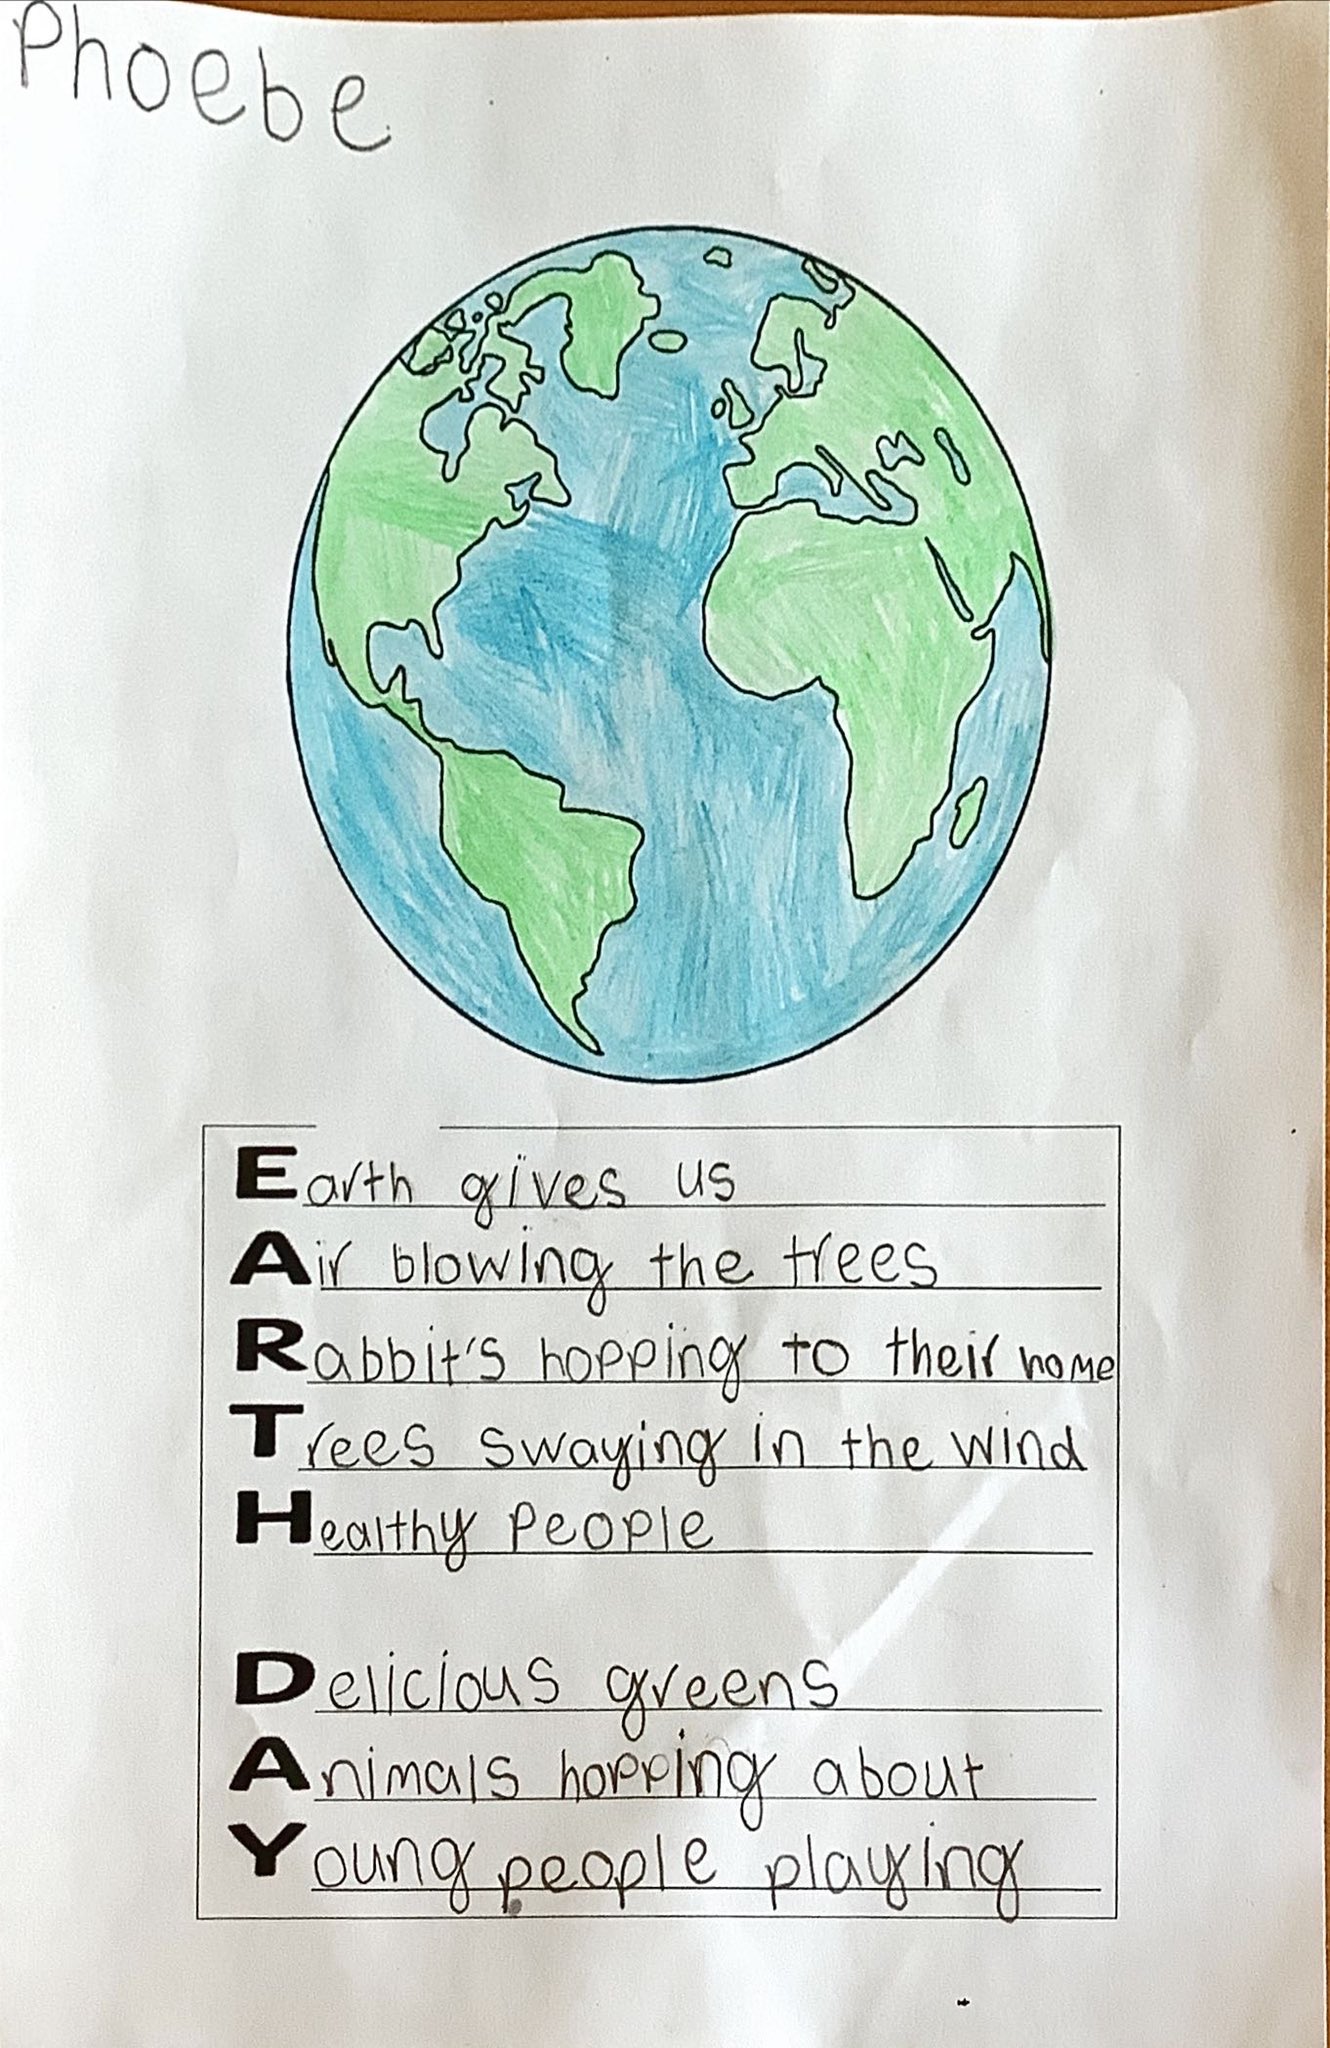 Phoebe
Earth gives us
Air blowing the trees
Rabbit's hopping to their home
Trees swaying in the wind
Healthy People
Delicious greens
Animals hopping about
Young people playing